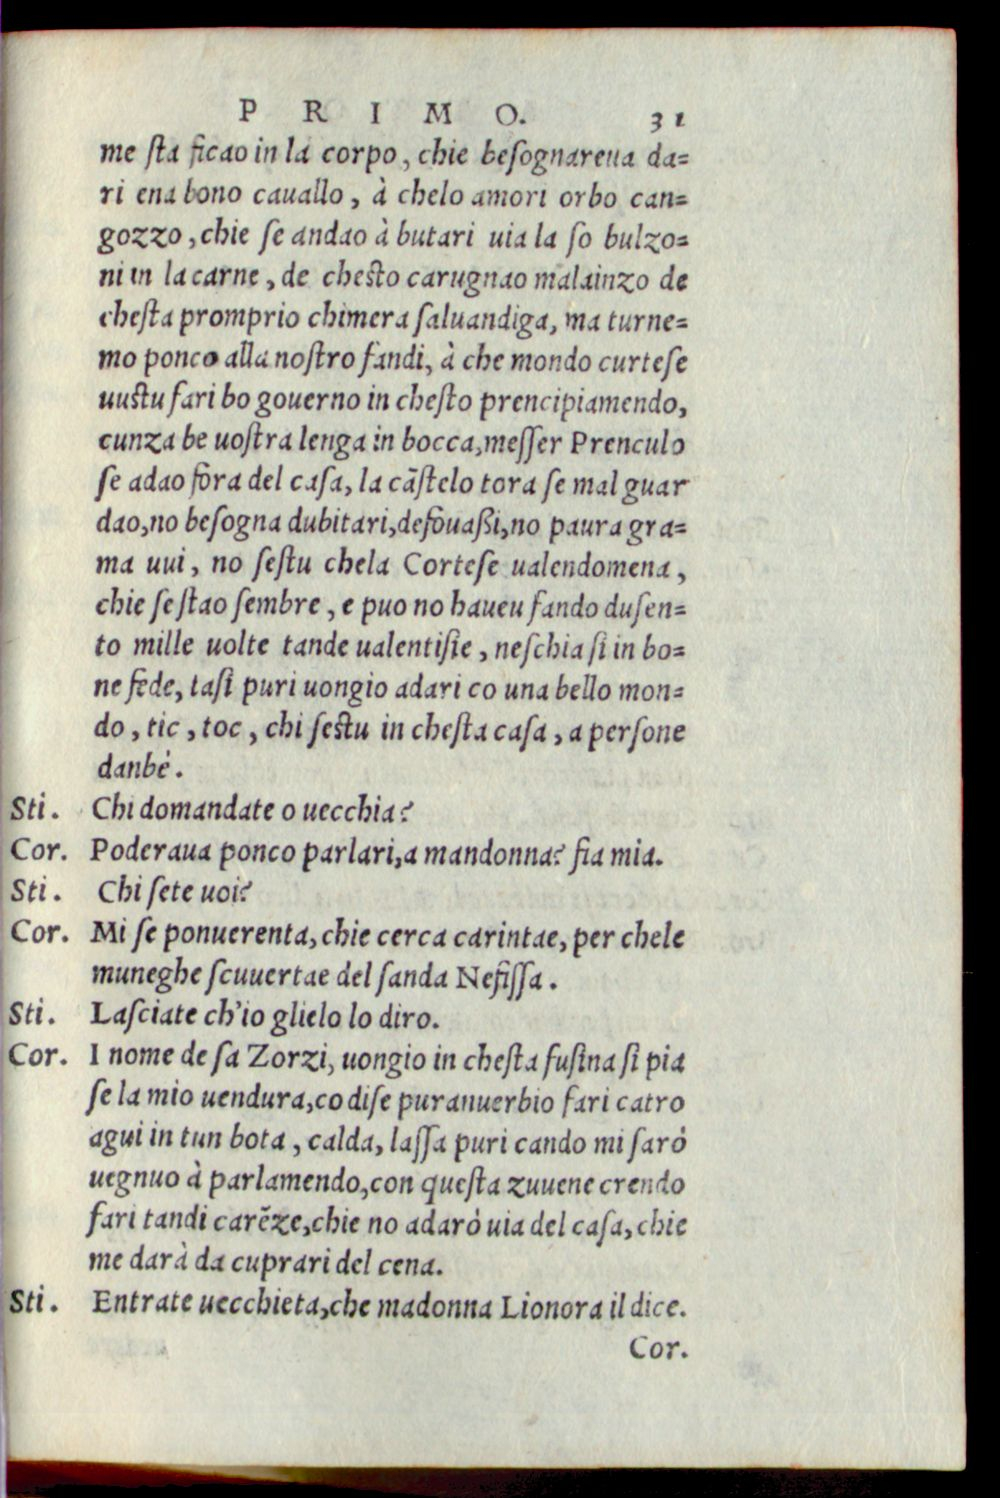 PRIMO. 31
me ſta ficao in la corpo, chie beſognareua da=
ri ena bono cauallo, à chelo amori orbo can=
gozzo, chie ſe andao à butari uia la ſo bulzo=
ni in la carne, de cheſto carugnao malainzo de
cheſta promprio chimera ſaluandiga, ma turne=
mo ponco alla noſtro fandi, à che mondo curteſe
uuſtu fari bo gouerno in cheſto prencipiamendo,
cunza be uoſtra lenga in bocca, meſſer Prenculo
ſe adao fora del caſa, la cãſtelo tora ſe mal guar
dao, no beſogna dubitari, defouaßi, no paura gra=
ma uui, no ſeſtu chela Corteſe ualendomena,
chie ſe ſtao ſembre, e puo no haueu fando duſen=
to mille uolte tande ualentiſie, neſchia ſi in bo=
ne fede, taſi puri uongio adari co una bello mon=
do, tic, toc, chi ſeſtu in cheſta caſa, a perſone
danbè.
Sti. Chi domandate o uecchia?
Cor. Poderaua ponco parlari, a mandonna? fia mia.
Sti. Chi ſete uoi?
Cor. Mi ſe ponuerenta, chie cerca carintae, per chele
muneghe ſcuuertae del ſanda Nefiſſa.
Sti. Laſciate ch'io glielo lo diro.
Cor. I nome de ſa Zorzi, uongio in cheſta fuſina ſi pia
ſe la mio uendura, co diſe puranuerbio fari catro
agui in tun bota, calda, laſſa puri cando mi ſarò
uegnuo à parlamendo, con queſta zuuene crendo
fari tandi carẽze, chie no adarò uia del caſa, chie
me darà da cuprari del cena.
Sti. Entrate uecchieta, che madonna Lionora il dice.
Cor.